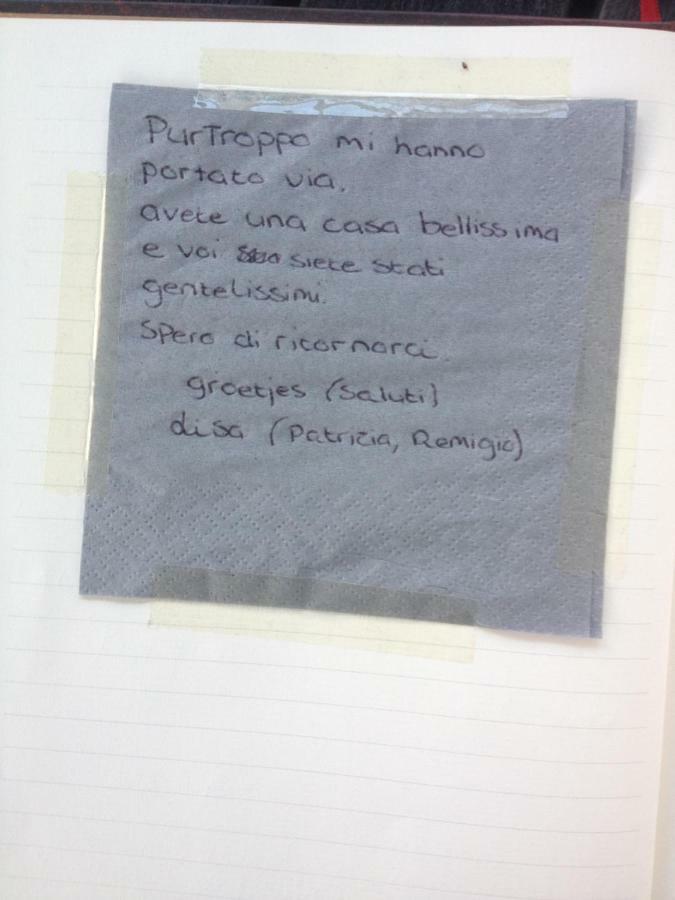 PurTroppo mi hanno
portato via.
avete una casa bellissima
e voi siete stati
gentelissimi.
Spero di ritornarci.
groetjes (Saluti)
disa (Patrizia, Remigio)